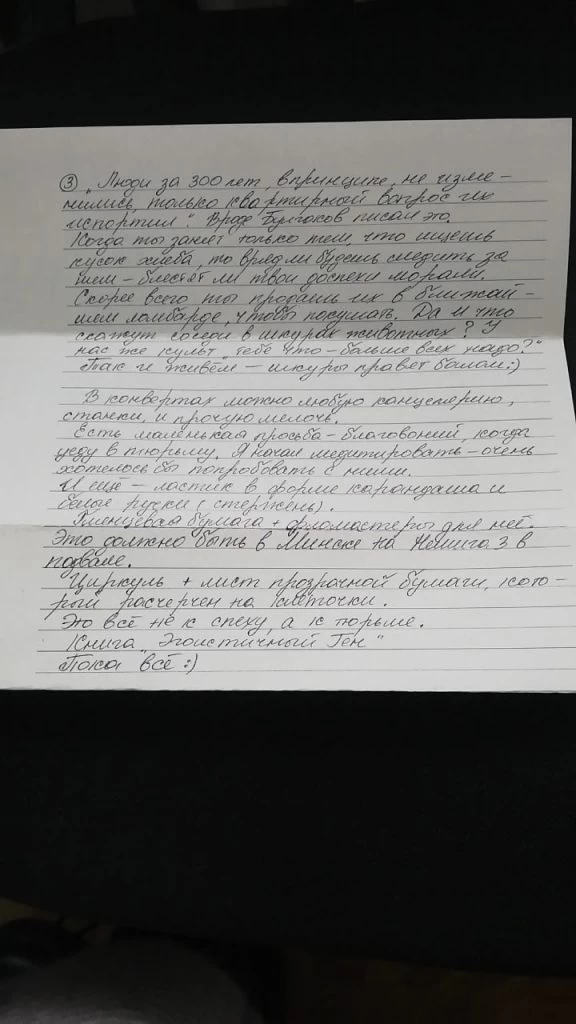 ③ „Люди за 300 лет, впринципе, не изме-
нились, только квартирный вопрос их
испортил". Вроде Булгаков писал это.
Когда ты занят только тем, что ищешь
кусок хлеба, то врядли будешь следить за
тем – блестят ли твои доспехи морали.
Скорее всего ты продашь их в ближай-
шем ломбарде, чтобы покушать. Да и что
скажут соседи в шкурах животных? У
нас же культ „тебе что – больше всех надо?"
Так и живём – шкуры правят балом :)
В конвертах можно любую канцелярию,
станки, и прочую мелочь.
Есть маленькая просьба – благовоний, когда
уеду в тюрьму. Я начал медитировать – очень
хотелось бы попробовать с ними.
И ещё – ластик в форме карандаша и
белые ручки (стержень).
Глянцевая бумага + фломастеры для неё.
Это должно быть в Минске на Немига 3 в
подвале.
Циркуль + лист прозрачной бумаги, кото-
рый расчерчен на клеточки.
Это всё не к спеху, а к тюрьме.
Книга „Эгоистичный Ген"
Пока всё :)